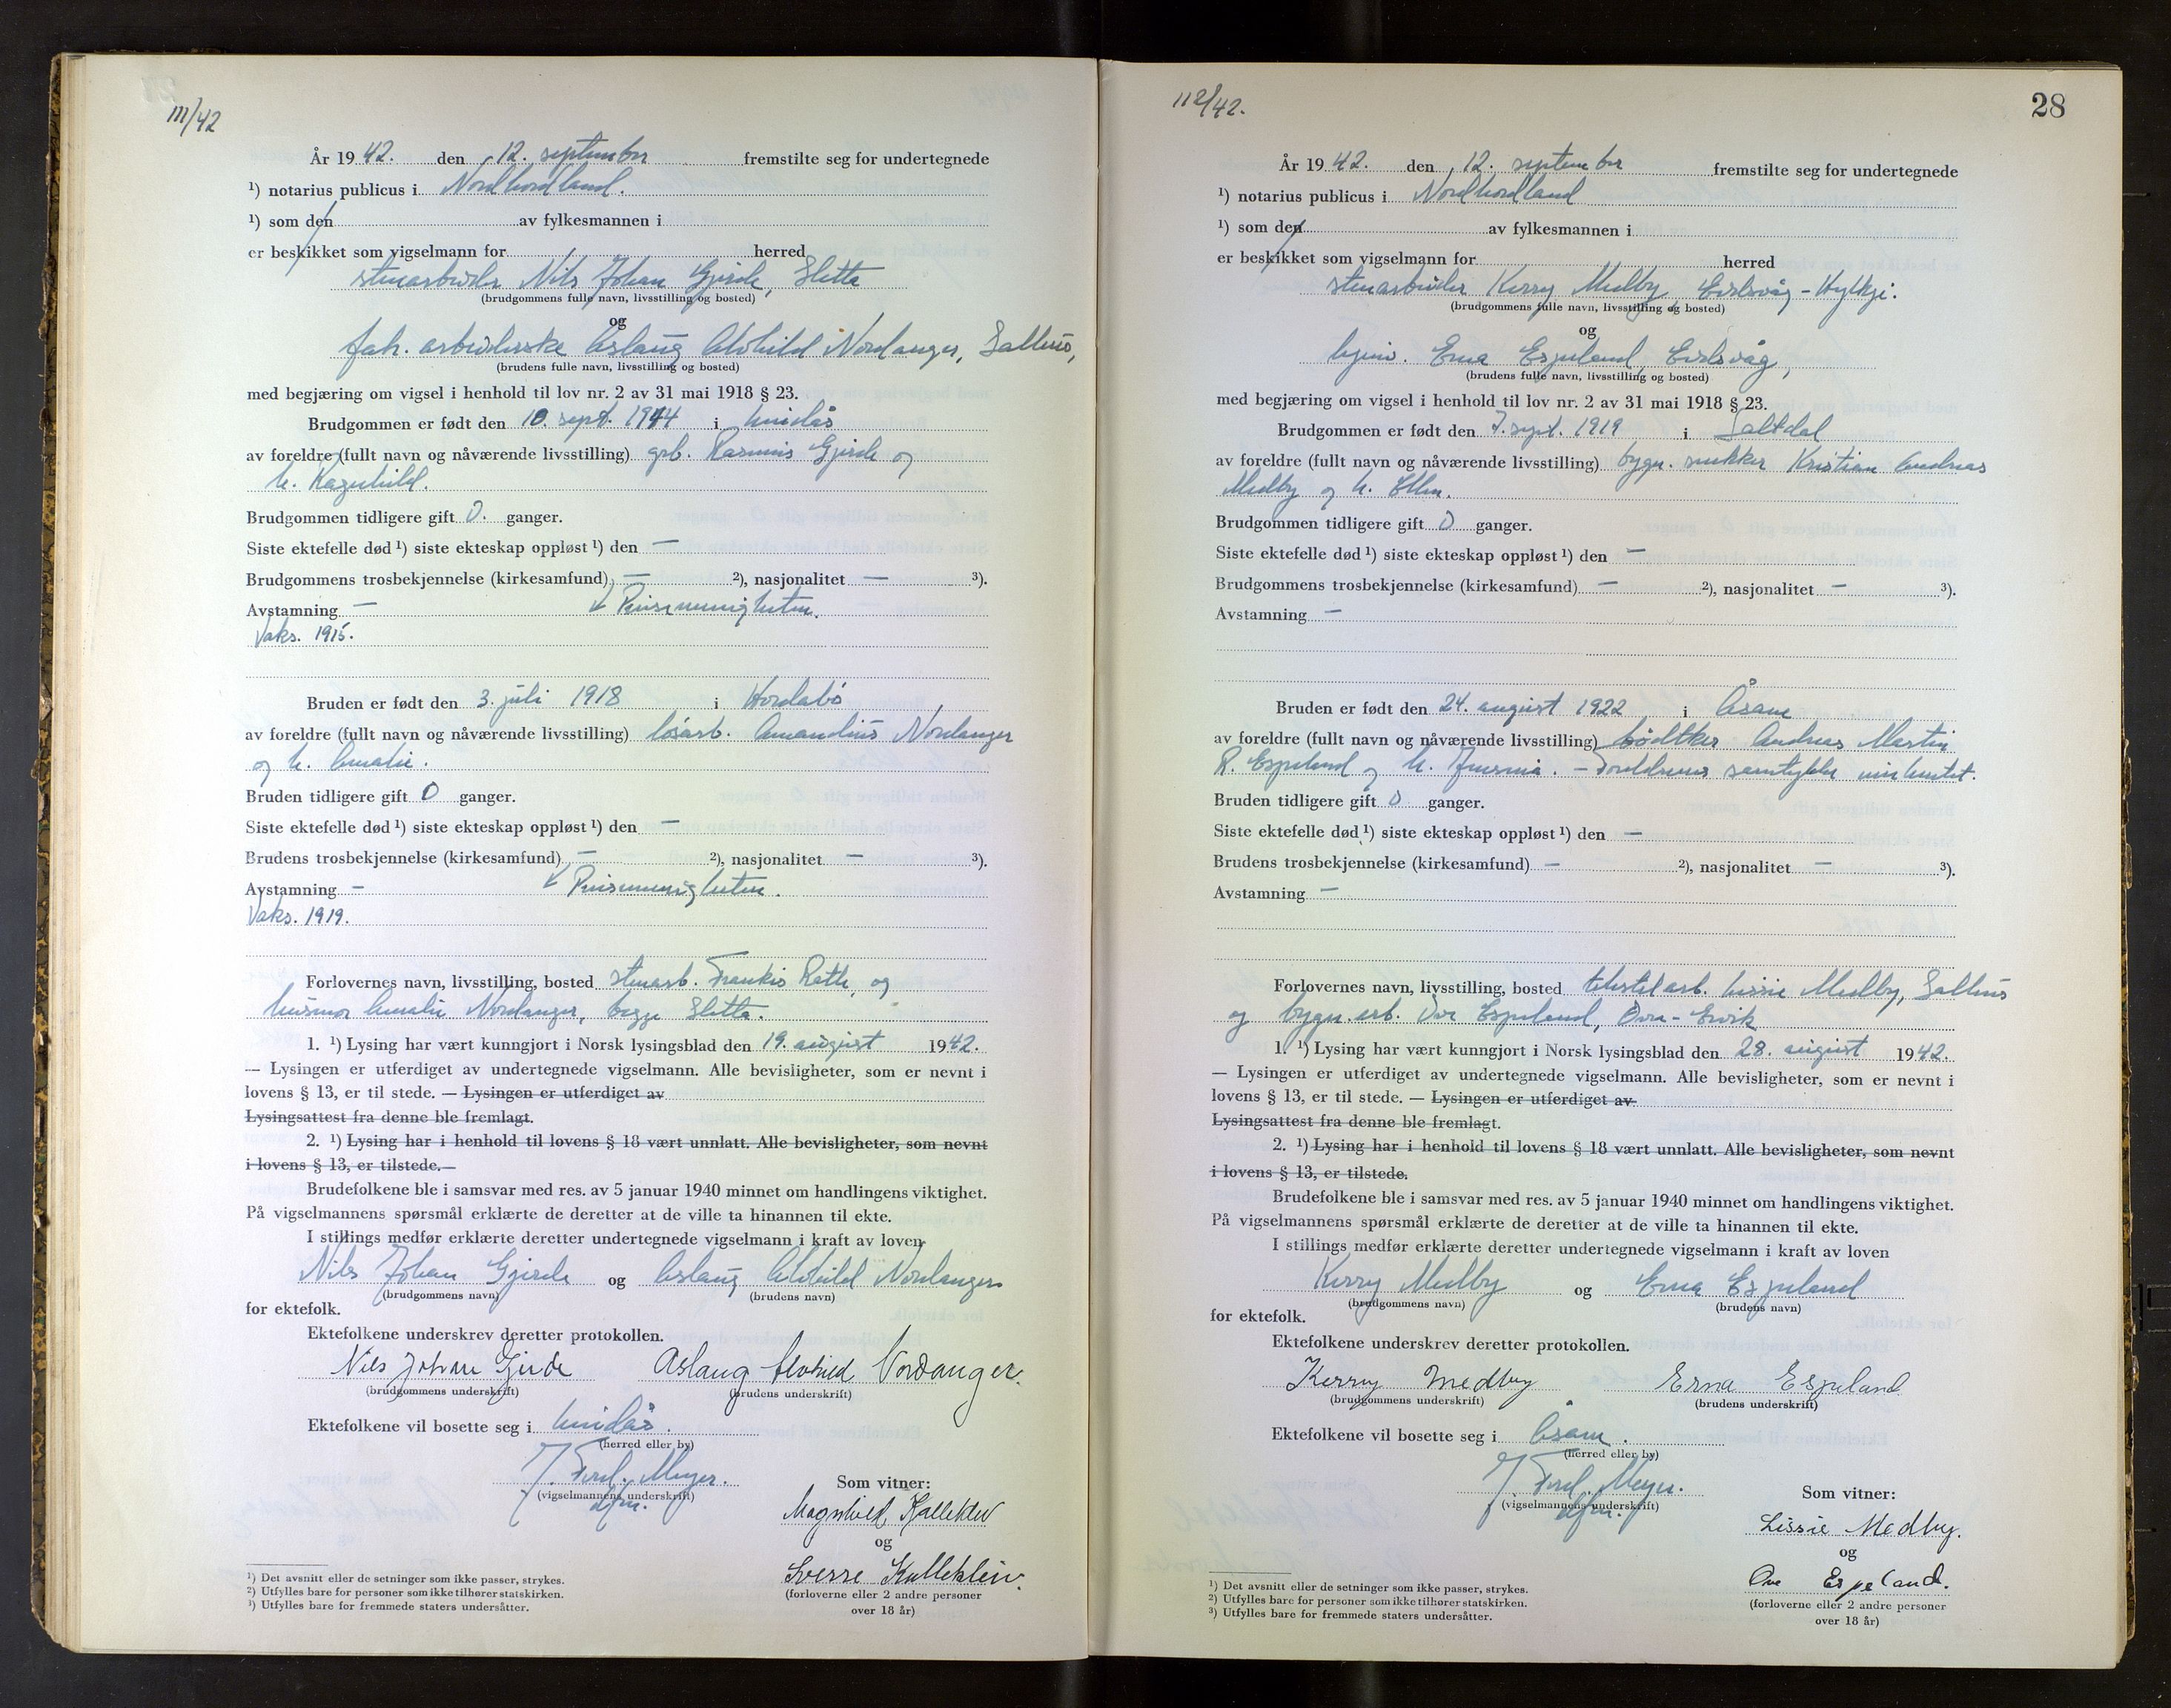 111/42
År 1942. den 12. september fremstilte seg for undertegnede
¹) notarius publicus i Nordhordland.
¹) som den av fylkesmannen i
er beskikket som vigselmann for herred
stenarbeider Nils Johan Gjerde, Sletta
(brudgommens fulle navn, livsstilling og bosted)
og
fab. arbeiderske Aslaug Alvhild Nordanger, Salhus,
(brudens fulle navn, livsstilling og bosted)
med begjæring om vigsel i henhold til lov nr. 2 av 31 mai 1918 § 23.
Brudgommen er født den 10. sept. 1914 i Lindås
av foreldre (fullt navn og nåværende livsstilling) grb. Rasmus Gjerde og
h. Ragnhild.
Brudgommen tidligere gift 0. ganger.
Siste ektefelle død ¹) siste ekteskap oppløst ¹) den —
Brudgommens trosbekjennelse (kirkesamfund) — ²), nasjonalitet — ³).
Avstamning — Pinsemenigheten.
Vaks. 1915.
Bruden er født den 3. juli 1918 i Hordabø
av foreldre (fullt navn og nåværende livsstilling) løsarb. Amandus Nordanger
og h. Amalie.
Bruden tidligere gift 0 ganger.
Siste ektefelle død ¹) siste ekteskap oppløst ¹) den —
Brudens trosbekjennelse (kirkesamfund) — ²), nasjonalitet — ³).
Avstamning — Pinsemenigheten.
Vaks. 1919.
Forlovernes navn, livsstilling, bosted stenarb. Frankis Rath, og
husmor Amalie Nordanger, begge Sletta.
1. ¹) Lysing har vært kunngjort i Norsk lysingsblad den 19. august 1942.
— Lysingen er utferdiget av undertegnede vigselmann. Alle bevisligheter, som er nevnt i
lovens § 13, er til stede. — Lysingen er utferdiget av
Lysingsattest fra denne ble fremlagt.
2. ¹) Lysing har i henhold til lovens § 18 vært unnlatt. Alle bevisligheter, som nevnt
i lovens § 13, er tilstede.—
Brudefolkene ble i samsvar med res. av 5 januar 1940 minnet om handlingens viktighet.
På vigselmannens spørsmål erklærte de deretter at de ville ta hinannen til ekte.
I stillings medfør erklærte deretter undertegnede vigselmann i kraft av loven
Nils Johan Gjerde og Aslaug Alvhild Nordanger
(brudgommens navn) (brudens navn)
for ektefolk.
Ektefolkene underskrev deretter protokollen.
Nils Johan Gjerde Aslaug Alvhild Nordanger.
(brudgommens underskrift) (brudens underskrift)
Ektefolkene vil bosette seg i Lindås.
(herred eller by)
Ferd. Meyer.
(vigselmannens underskrift)
dfm.
Som vitner:
Magnhild Kalleklev
og
Sverre Kalleklev.
(forloverne eller 2 andre personer
over 18 år)
¹) Det avsnitt eller de setninger som ikke passer, strykes.
²) Utfylles bare for personer som ikke tilhører statskirken.
³) Utfylles bare for fremmede staters undersåtter.
112/42.
28
År 1942. den 12. september fremstilte seg for undertegnede
¹) notarius publicus i Nordhordland
¹) som den av fylkesmannen i
er beskikket som vigselmann for herred
stenarbeider Kerry Medby Eidsvåg - Hylkje.
(brudgommens fulle navn, livsstilling og bosted)
og
hjmv. Erna Espeland, Eidsvåg,
(brudens fulle navn, livsstilling og bosted)
med begjæring om vigsel i henhold til lov nr. 2 av 31 mai 1918 § 23.
Brudgommen er født den 7. sept. 1919 i Saltdal
av foreldre (fullt navn og nåværende livsstilling) bygn. snekker Kristian Andreas
Medby og h. Ellen.
Brudgommen tidligere gift 0 ganger.
Siste ektefelle død ¹) siste ekteskap oppløst ¹) den —
Brudgommens trosbekjennelse (kirkesamfund) — ²), nasjonalitet — ³).
Avstamning —
Bruden er født den 24. august 1922 i Åsane
av foreldre (fullt navn og nåværende livsstilling) bødtker Andreas Martin
R. Espeland og h. — Foreldrenes samtykke innhentet.
Bruden tidligere gift 0 ganger.
Siste ektefelle død ¹) siste ekteskap oppløst ¹) den —
Brudens trosbekjennelse (kirkesamfund) — ²), nasjonalitet — ³).
Avstamning —
Forlovernes navn, livsstilling, bosted tekstilarb. Lissie Medby, Salhus
og bygn. arb. Ove Espeland, Øvre-Ervik
1. ¹) Lysing har vært kunngjort i Norsk lysingsblad den 28. august 1942.
— Lysingen er utferdiget av undertegnede vigselmann. Alle bevisligheter, som er nevnt i
lovens § 13, er til stede. — Lysingen er utferdiget av
Lysingsattest fra denne ble fremlagt.
2. ¹) Lysing har i henhold til lovens § 18 vært unnlatt. Alle bevisligheter, som nevnt
i lovens § 13, er tilstede.
Brudefolkene ble i samsvar med res. av 5 januar 1940 minnet om handlingens viktighet.
På vigselmannens spørsmål erklærte de deretter at de ville ta hinannen til ekte.
I stillings medfør erklærte deretter undertegnede vigselmann i kraft av loven
Kerry Medby og Erna Espeland
(brudgommens navn) (brudens navn)
for ektefolk.
Ektefolkene underskrev deretter protokollen.
Kerry Medby Erna Espeland
(brudgommens underskrift) (brudens underskrift)
Ektefolkene vil bosette seg i Åsane.
(herred eller by)
Ferd. Meyer.
(vigselmannens underskrift)
dfm.
Som vitner:
Lissie Medby.
og
Ove Espeland.
(forloverne eller 2 andre personer
over 18 år)
¹) Det avsnitt eller de setninger som ikke passer, strykes.
²) Utfylles bare for personer som ikke tilhører statskirken.
³) Utfylles bare for fremmede staters undersåtter.